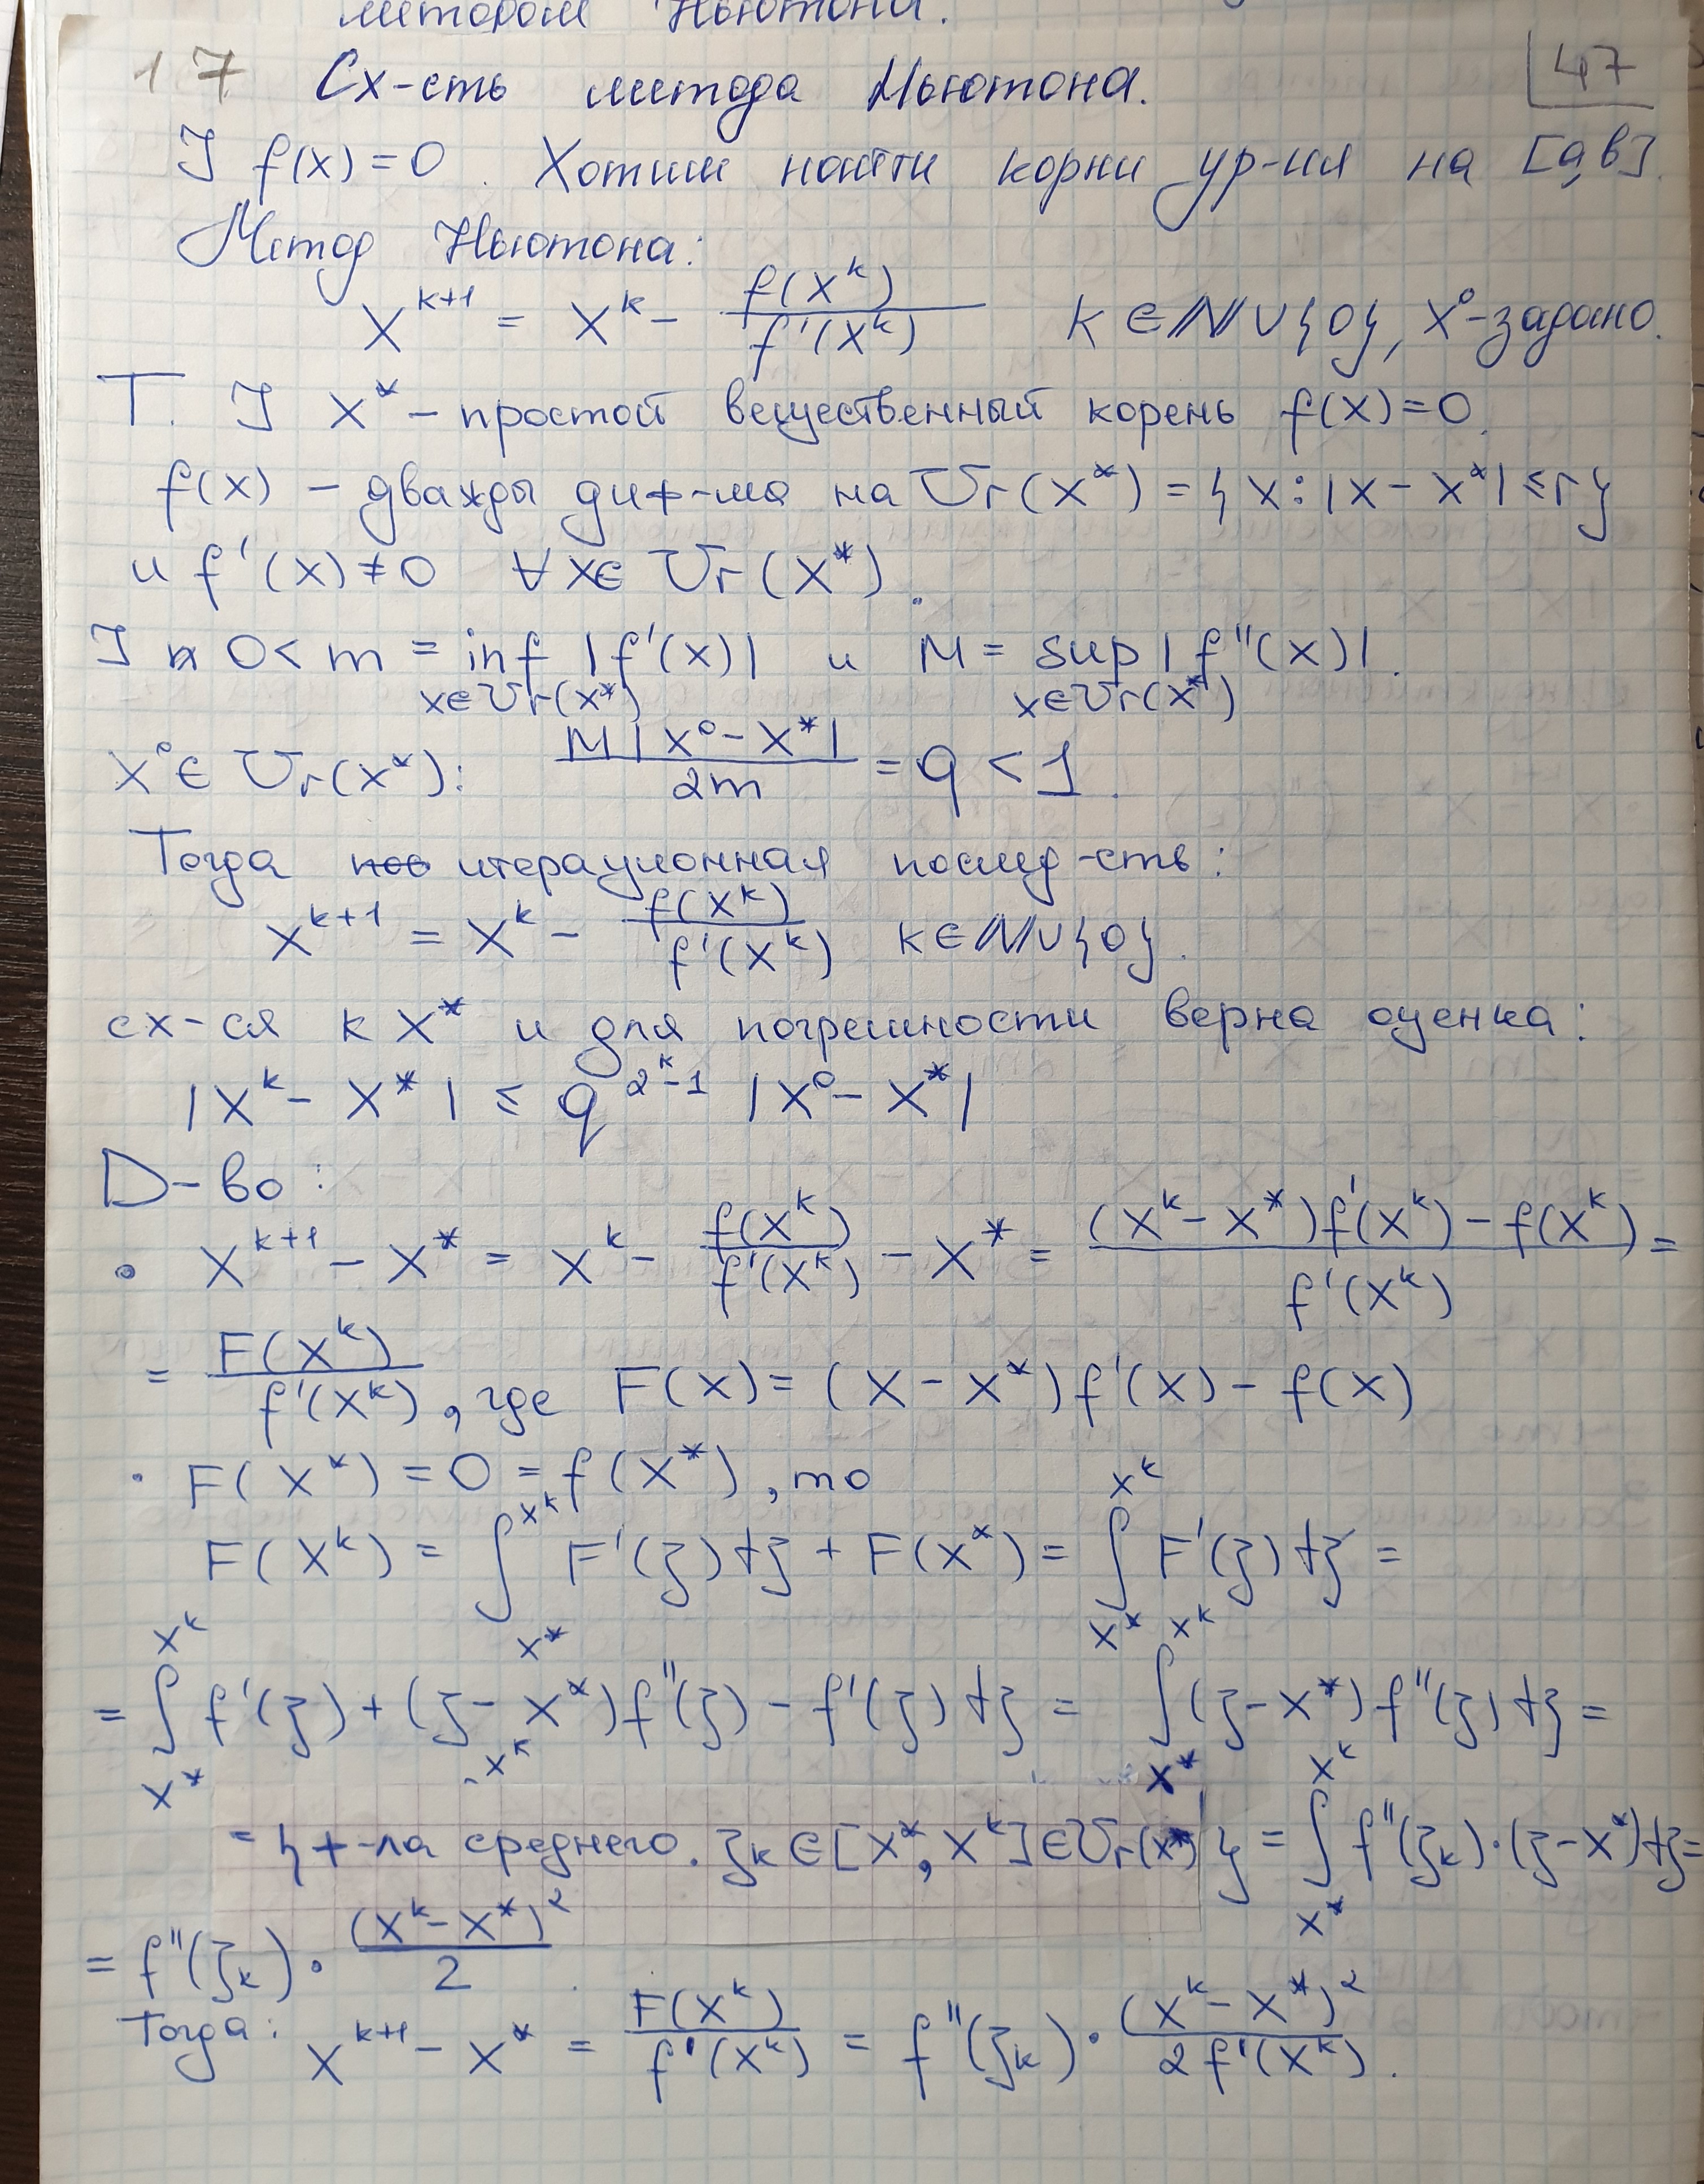 методом Ньютона.
17 Сх-сть метода Ньютона. 47
] f(x)=0. Хотим найти корни ур-ия на [a,b].
Метод Ньютона:
x^{k+1} = x^k - f(x^k)/f'(x^k) k∈ℕ∪{0}, x^0-задано.
Т. ] x* - простой вещественный корень f(x)=0.
f(x) - дважды диф-ма на U_r(x*) = {x: |x - x*| ≤ r}
и f'(x)≠0 ∀x∈ U_r(x*).
] 0 < m = inf_{x∈U_r(x*)} |f'(x)| и M = sup_{x∈U_r(x*)} |f''(x)|.
x^0 ∈ U_r(x*): M|x^0 - x*|/2m = q < 1.
Тогда итерационная послед-сть:
x^{k+1} = x^k - f(x^k)/f'(x^k) k∈ℕ∪{0}.
сх-ся к x* и для погрешности верна оценка:
|x^k - x*| ≤ q^{2^k-1} |x^0 - x*|
D-во:
• x^{k+1} - x* = x^k - f(x^k)/f'(x^k) - x* = ((x^k - x*)f'(x^k) - f(x^k))/f'(x^k) =
= F(x^k)/f'(x^k), где F(x) = (x - x*)f'(x) - f(x)
• F(x*) = 0 = f(x*), то
F(x^k) = ∫_{x*}^{x^k} F'(ξ)dξ + F(x*) = ∫_{x*}^{x^k} F'(ξ)dξ =
= ∫_{x*}^{x^k} f'(ξ) + (ξ - x*)f''(ξ) - f'(ξ) dξ = ∫_{x*}^{x^k} (ξ - x*) f''(ξ) dξ =
= {ф-ла среднего. ξ_k ∈ [x*, x^k] ∈ U_r(x*)} = ∫_{x*}^{x^k} f''(ξ_k)·(ξ - x*)dξ =
= f''(ξ_k)·(x^k - x*)^2/2
Тогда: x^{k+1} - x* = F(x^k)/f'(x^k) = f''(ξ_k)·(x^k - x*)^2/2f'(x^k).